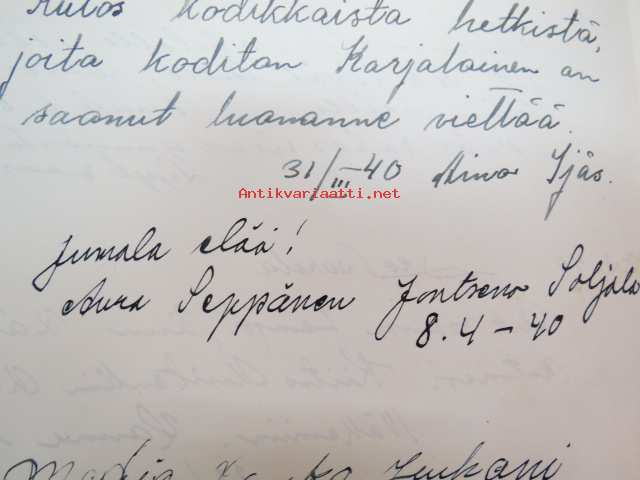 Kiitos kodikkaista hetkistä,
joita koditon Karjalainen on
saanut luonanne viettää.
31/III-40 Aino Ijäs.
Antikvariaatti.net
Jumala elää!
Aura Seppänen
8.4-40